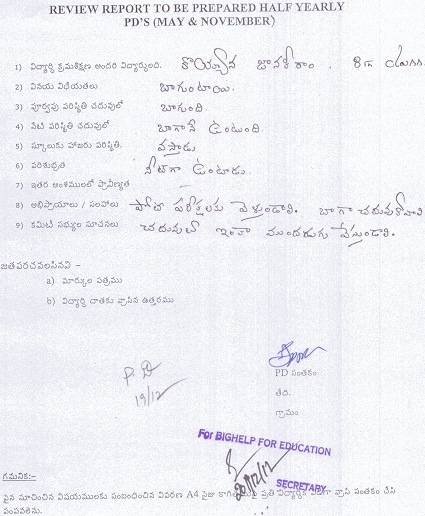 REVIEW REPORT TO BE PREPARED HALF YEARLY
PD'S (MAY & NOVEMBER)
1) విద్యార్థి క్రమశిక్షణ అందరి విద్యార్థులంది. కొయ్యాన జానకీరాం. 8th class.
2) వినయ విధేయతలు బాగుంటాయి.
3) పూర్వపు పరిస్థితి చదువులో బాగుంది.
4) నేటి పరిస్థితి చదువులో బాగానే ఉంటుంది.
5) స్కూలుకు హాజరు పరిస్థితి. వస్తాడు
6) పరిశుభ్రత నీట్‌గా ఉంటాడు.
7) ఇతర అంశములలో ప్రావీణ్యత
8) అభిప్రాయాలు / సలహాలు పోటీ పరీక్షలకు వెళ్తుండాలి. బాగా చదువుకోవాలి
9) కమిటీ సభ్యుల సూచనలు చదువులో ఇంకా ముందడుగు వేస్తుండాలి.
జతపరచవలసినవి :-
a) మార్కుల పత్రము
b) విద్యార్థి దాతకు వ్రాసిన ఉత్తరము
PD సంతకం
P.D
19/12
తేది.
గ్రామం.
For BIGHELP FOR EDUCATION
20/12/12
SECRETARY
గమనిక:-
పైన సూచించిన విషయములకు సంబంధించిన వివరణ A4 సైజు ప్రతి వ్రాసి సంతకం చేసి
పంపవలెను.